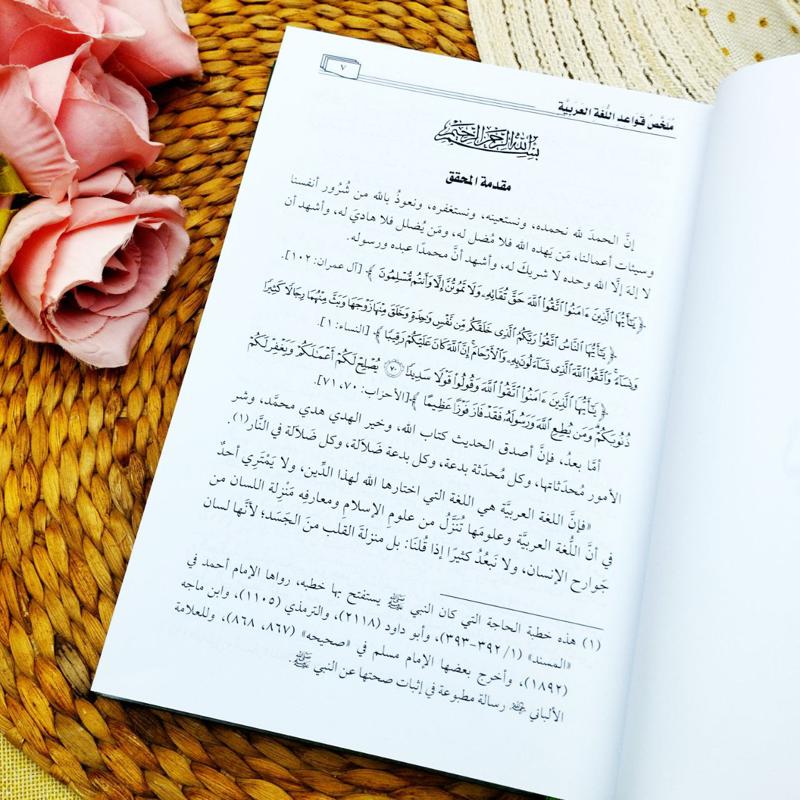 ملخص قواعد اللغة العربية
٧
بسم الله الرحمن الرحيم
مقدمة المحقق
إنَّ الحمدَ لله نحمده، ونستعينه، ونستغفره، ونعوذُ بالله من شُرُور أنفسنا
وسيئات أعمالنا، مَن يَهده الله فلا مُضل له، ومَن يُضلل فلا هاديَ له، وأشهد أن
لا إلهَ إلَّا الله وحده لا شريكَ له، وأشهد أنَّ محمدًا عبده ورسوله.
﴿يَٰٓأَيُّهَا ٱلَّذِينَ ءَامَنُوا۟ ٱتَّقُوا۟ ٱللَّهَ حَقَّ تُقَاتِهِۦ وَلَا تَمُوتُنَّ إِلَّا وَأَنتُم مُّسْلِمُونَ﴾ [آل عمران: ١٠٢].
﴿يَٰٓأَيُّهَا ٱلنَّاسُ ٱتَّقُوا۟ رَبَّكُمُ ٱلَّذِى خَلَقَكُم مِّن نَّفْسٍ وَٰحِدَةٍ وَخَلَقَ مِنْهَا زَوْجَهَا وَبَثَّ مِنْهُمَا رِجَالًا كَثِيرًا
وَنِسَآءً وَٱتَّقُوا۟ ٱللَّهَ ٱلَّذِى تَسَآءَلُونَ بِهِۦ وَٱلْأَرْحَامَ إِنَّ ٱللَّهَ كَانَ عَلَيْكُمْ رَقِيبًا﴾ [النساء: ١].
﴿يَٰٓأَيُّهَا ٱلَّذِينَ ءَامَنُوا۟ ٱتَّقُوا۟ ٱللَّهَ وَقُولُوا۟ قَوْلًا سَدِيدًا ٧٠ يُصْلِحْ لَكُمْ أَعْمَٰلَكُمْ وَيَغْفِرْ لَكُمْ
ذُنُوبَكُمْ وَمَن يُطِعِ ٱللَّهَ وَرَسُولَهُۥ فَقَدْ فَازَ فَوْزًا عَظِيمًا﴾ [الأحزاب: ٧٠، ٧١].
أمَّا بعدُ، فإنَّ أصدق الحديث كتاب الله، وخير الهدي هدي محمَّد، وشر
الأمور مُحدَثاتها، وكل مُحدَثة بدعة، وكل بدعة ضَلالَة، وكل ضَلالَة في النَّار(١).
«فإنَّ اللغة العربيَّة هي اللغة التي اختارها الله لهذا الدِّين، ولا يَمْتَرِي أحدٌ
في أنَّ اللُّغة العربيَّة وعلومَها تُنَزَّلُ من علومِ الإسلامِ ومعارفِه مَنْزِلة اللسان من
جَوارح الإنسان، ولا نَبعُدُ كثيرًا إذا قُلنَا: بل منزلةَ القلب منَ الجَسَد؛ لأنَّها لسان
(١) هذه خطبة الحاجة التي كان النبي ﷺ يستفتح بها خطبه، رواها الإمام أحمد في
«المسند» (١/ ٣٩٢-٣٩٣)، وأبو داود (٢١١٨)، والترمذي (١١٠٥)، وابن ماجه
(١٨٩٢)، وأخرج بعضها الإمام مسلم في «صحيحه» (٨٦٧، ٨٦٨)، وللعلامة
الألباني رسالة مطبوعة في إثبات صحتها عن النبي ﷺ.